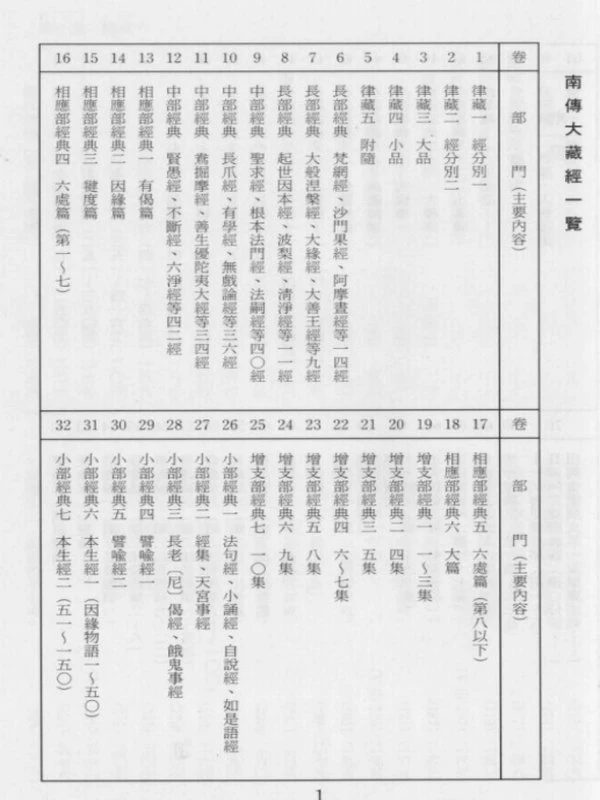 南傳大藏經一覽
卷 部 門（主要內容）
1 律藏一 經分別一
2 律藏二 經分別二
3 律藏三 大品
4 律藏四 小品
5 律藏五 附隨
6 長部經典一 梵網經、沙門果經、阿摩晝經等一四經
7 長部經典二 大般涅槃經、大緣經、大善王經等九經
8 長部經典三 起世因本經、波梨經、清淨經等一一經
9 中部經典一 聖求經、根本法門經、法嗣經等四〇經
10 中部經典二 長爪經、有學經、無戲論經等三六經
11 中部經典三 鴦掘摩經、善生優陀夷大經等三四經
12 中部經典四 賢愚經、不斷經、六淨經等四二經
13 相應部經典一 有偈篇
14 相應部經典二 因緣篇
15 相應部經典三 犍度篇
16 相應部經典四 六處篇（第一～七）
卷 部 門（主要內容）
17 相應部經典五 六處篇（第八以下）
18 相應部經典六 大篇
19 增支部經典一 一～三集
20 增支部經典二 四集
21 增支部經典三 五集
22 增支部經典四 六～七集
23 增支部經典五 八集
24 增支部經典六 九集
25 增支部經典七 一〇集
26 小部經典一 法句經、小誦經、自說經、如是語經
27 小部經典二 經集、天宮事經
28 小部經典三 長老〔尼〕偈經、餓鬼事經
29 小部經典四 譬喻經一
30 小部經典五 譬喻經二
31 小部經典六 本生經一（因緣物語一～五〇）
32 小部經典七 本生經二（五一～一五〇）
1